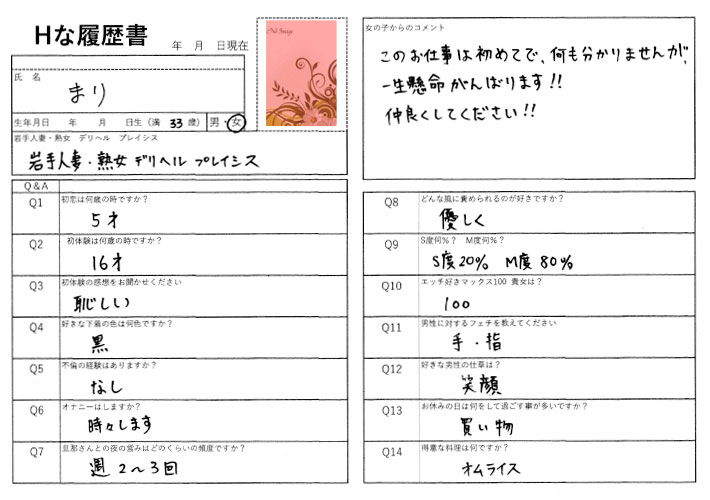 Hな履歴書
年 月 日現在
No Image
氏 名
まり
生年月日 年 月 日生 (満 33 歳) 男・女
岩手人妻・熟女 デリヘル プレイシス
岩手人妻・熟女 デリヘル プレイシス
Q&A
Q1 初恋は何歳の時ですか?
5才
Q2 初体験は何歳の時ですか?
16才
Q3 初体験の感想をお聞かせください
恥しい
Q4 好きな下着の色は何色ですか?
黒
Q5 不倫の経験はありますか?
なし
Q6 オナニーはしますか?
時々します
Q7 旦那さんとの夜の営みはどのくらいの頻度ですか?
週 2〜3回
女の子からのコメント
このお仕事は初めてで、何も分かりませんが、
一生懸命がんばります!!
仲良くしてください!!
Q8 どんな風に責められるのが好きですか?
優しく
Q9 S度何%? M度何%?
S度20% M度80%
Q10 エッチ好きマックス100 貴女は?
100
Q11 男性に対するフェチを教えてください
手・指
Q12 好きな男性の仕草は?
笑顔
Q13 お休みの日は何をして過ごす事が多いですか?
買い物
Q14 得意な料理は何ですか?
オムライス